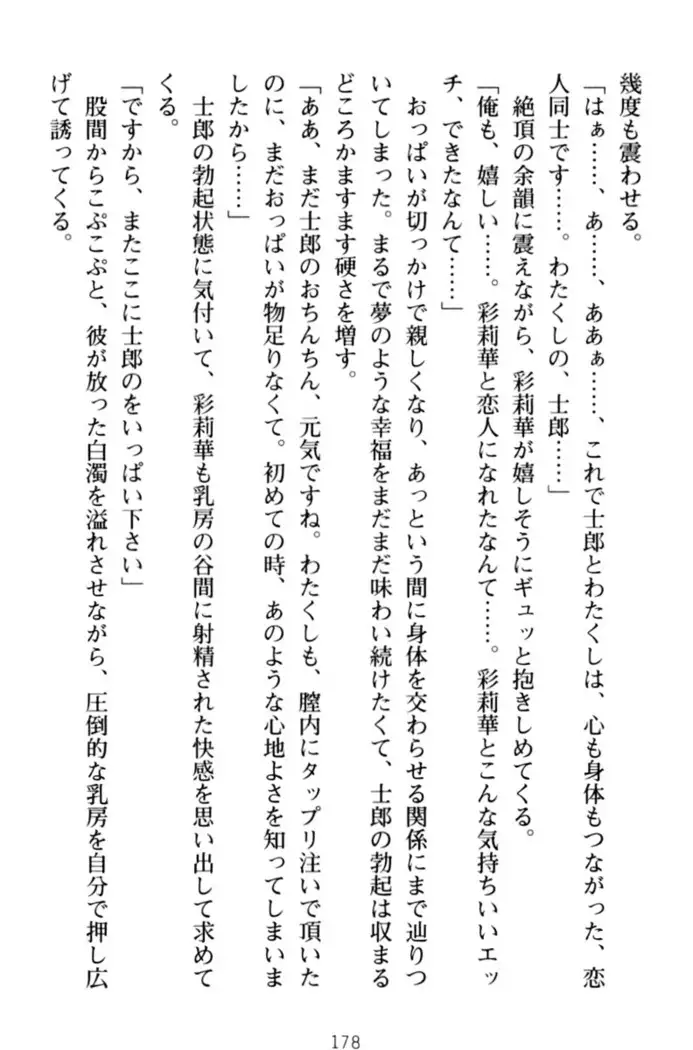 幾度も震わせる。
「はぁ……、あ……、ああぁ……、これで士郎とわたくしは、心も身体もつながった、恋
人同士です……。わたくしの、士郎……」
絶頂の余韻に震えながら、彩莉華が嬉しそうにギュッと抱きしめてくる。
「俺も、嬉しい……。彩莉華と恋人になれたなんて……。彩莉華とこんな気持ちいいエッ
チ、できたなんて……」
おっぱいが切っかけで親しくなり、あっという間に身体を交わらせる関係にまで辿りつ
いてしまった。まるで夢のような幸福をまだまだ味わい続けたくて、士郎の勃起は収まる
どころかますます硬さを増す。
「ああ、まだ士郎のおちんちん、元気ですね。わたくしも、膣内にタップリ注いで頂いた
のに、まだおっぱいが物足りなくて。初めての時、あのような心地よさを知ってしまいま
したから……」
士郎の勃起状態に気付いて、彩莉華も乳房の谷間に射精された快感を思い出して求めて
くる。
「ですから、またここに士郎のをいっぱい下さい」
股間からこぷこぷと、彼が放った白濁を溢れさせながら、圧倒的な乳房を自分で押し広
げて誘ってくる。
178